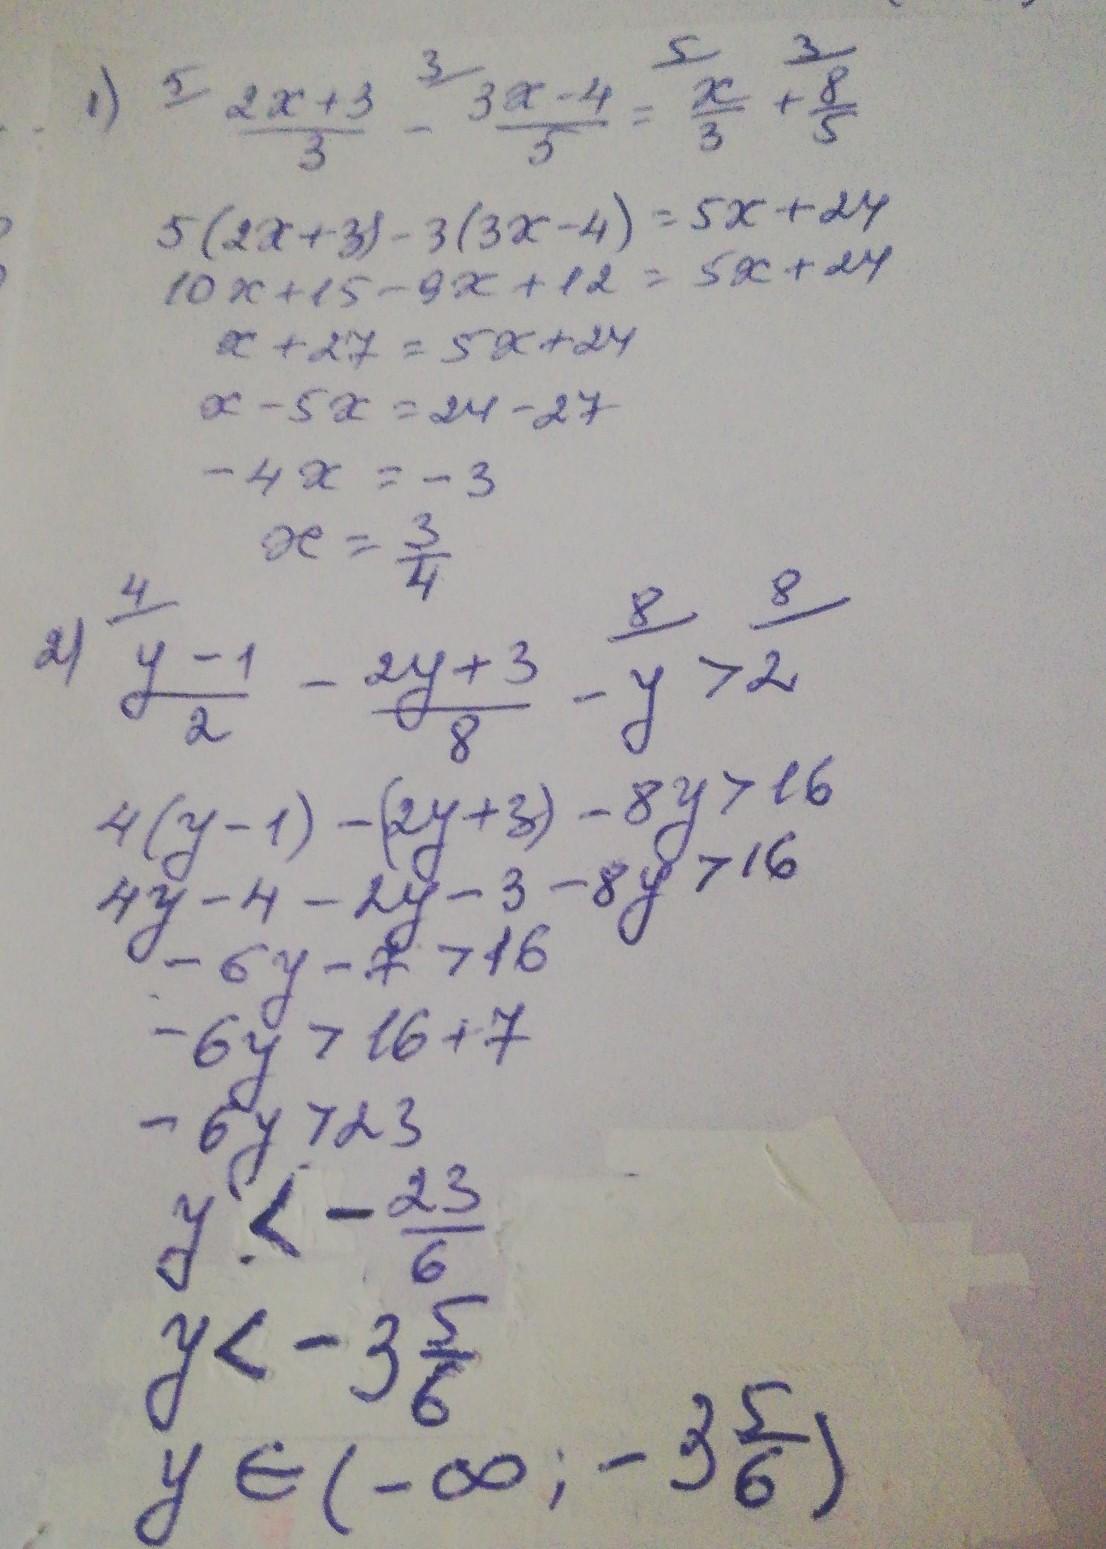 1) 5/ (2x+3)/3 - 3/ (3x-4)/5 = 5/ x/3 + 3/ 8/5
5(2x+3)-3(3x-4)=5x+24
10x+15-9x+12=5x+24
x+27=5x+24
x-5x=24-27
-4x=-3
x=3/4
2) 4/ (y-1)/2 - (2y+3)/8 - 8/ y > 8/ 2
4(y-1)-(2y+3)-8y>16
4y-4-2y-3-8y>16
-6y-7>16
-6y>16+7
-6y>23
y<-23/6
y<-3 5/6
y∈(-∞;-3 5/6)